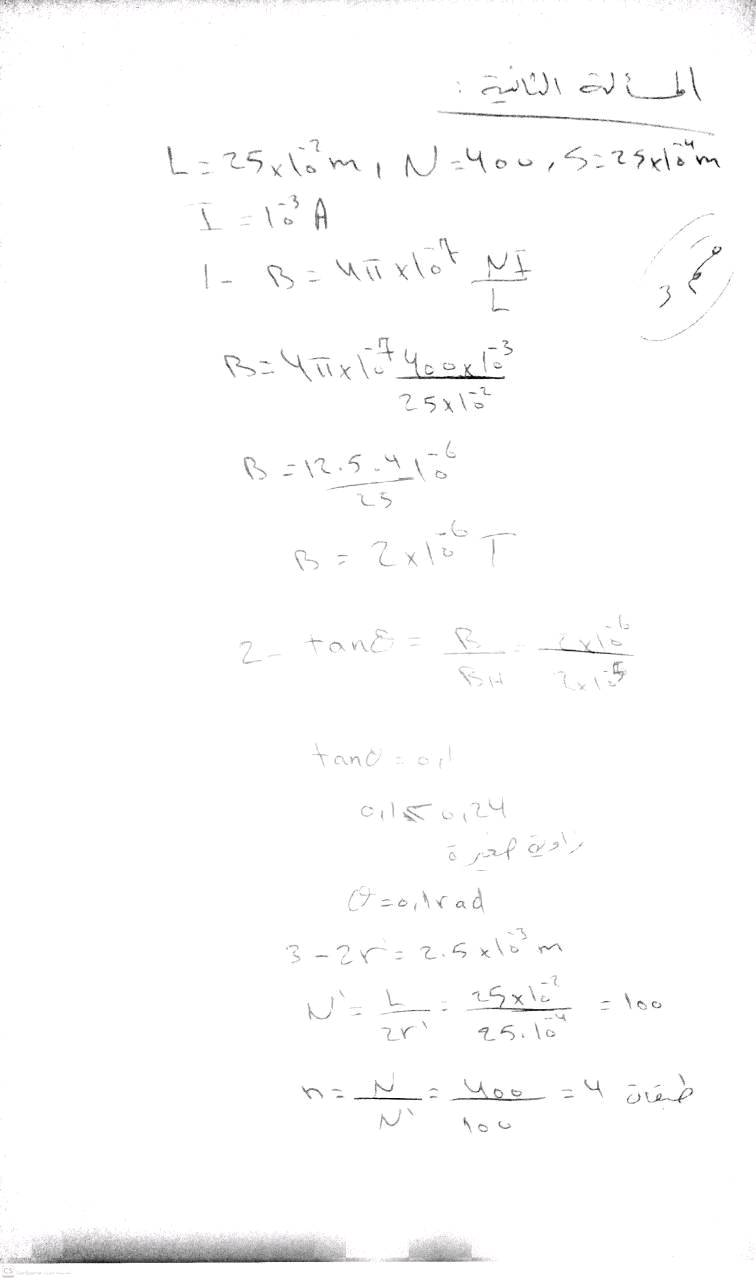 المسألة الثانية :
L = 25×10⁻² m , N = 400 , S = 25×10⁻⁴ m
I = 10⁻³ A
1- B = 4π×10⁻⁷ NI/L
3
B = 4π×10⁻⁷ 400×10⁻³/25×10⁻²
B = 12.5.4/25 10⁻⁶
B = 2×10⁻⁶ T
2- tanθ = B/BH = 2×10⁻⁶/2×10⁻⁵
tanθ = 0,1
0,1 < 0,24
زاوية صغيرة
θ = 0,1 rad
3 - 2r' = 2.5×10⁻³ m
N' = L/2r' = 25×10⁻²/25.10⁻⁴ = 100
n = N/N' = 400/100 = 4 طبقات
CS